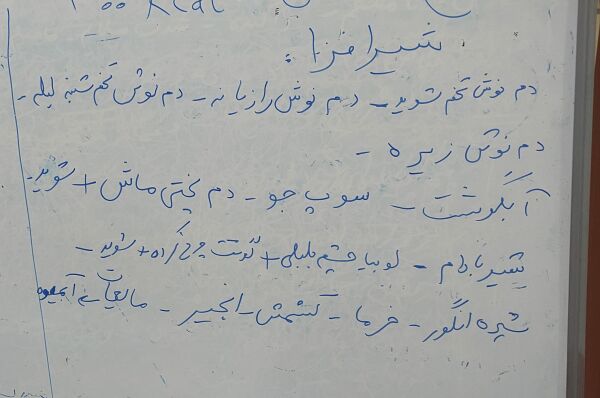 500 kcal
شیرافزا:
دم نوش تخم شوید - دم نوش رازیانه - دم نوش تخم شنبلیله -
دم نوش زیره -
آبگوشت - سوپ جو - دم پختی ماش + شوید -
شیر بادام - لوبیا چشم بلبلی + گوشت چرخ کرده + شوید -
شیره انگور - خرما - کشمش - انجیر - مایعات آبمیوه